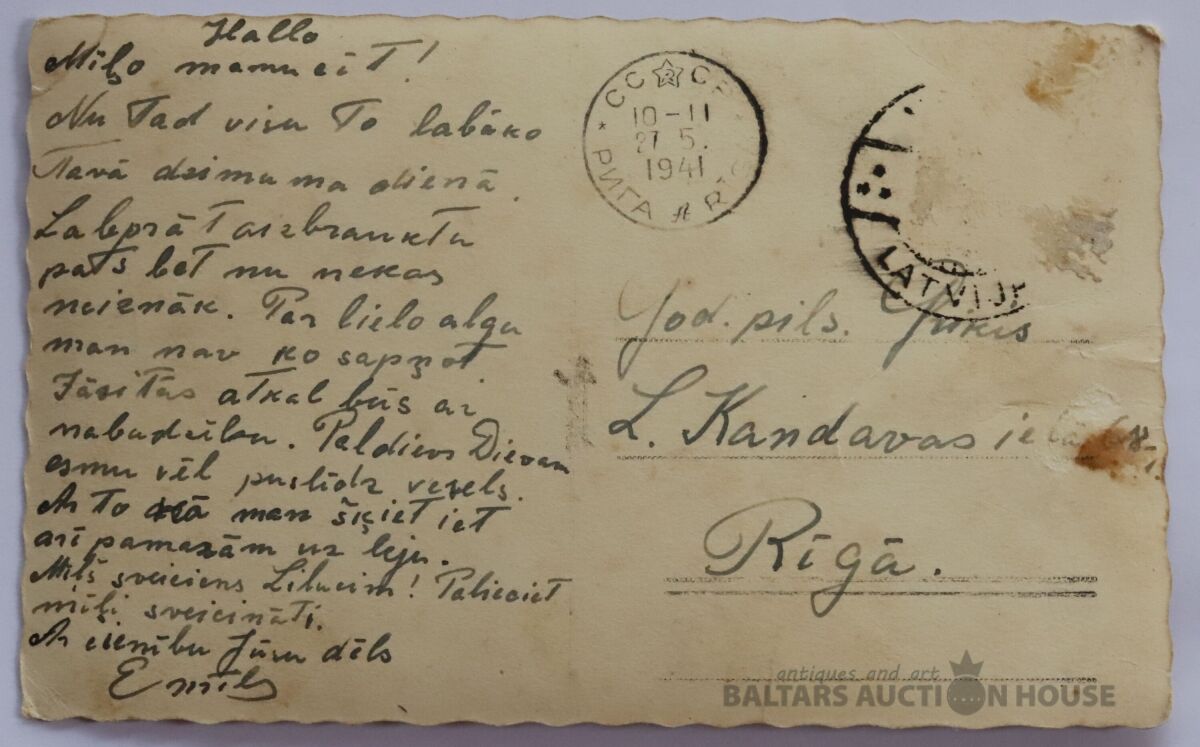 Hallo
Miļo mamucīt!
Nu Tad visu To labāko
Tavā dzimuma dienā.
Labprāt aizbrauktu
pats bet nu nekas
neiznāk. Par lielo algu
man nav ko sapņot
Jāsitās atkal būs ar
nabadzību. Paldievs Dievam
esmu vēl puslīdz vesels.
Ar To man šķiet iet
arī pamazām uz leju.
Mīļš sveiciens Lilucim! Palieciet
mīļi sveicināti.
Ar cienību Jūsu dēls
Emīls
СС СР
10-11
27 5.
1941
РИГА RĪG
LATVIJ
God. pils.
L. Kandavas ielā
Rīgā.
antiques and art
BALTARS AUCTION HOUSE